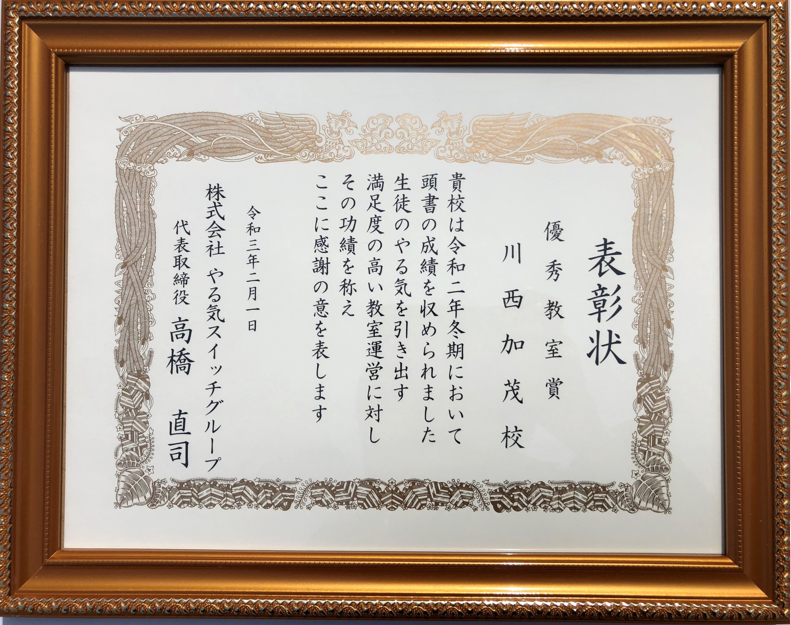 表彰状
優秀教室賞
川西加茂校
貴校は令和二年冬期において
頭書の成績を収められました
生徒のやる気を引き出す
満足度の高い教室運営に対し
その功績を称え
ここに感謝の意を表します
令和三年二月一日
株式会社 やる気スイッチグループ
代表取締役 高橋 直司